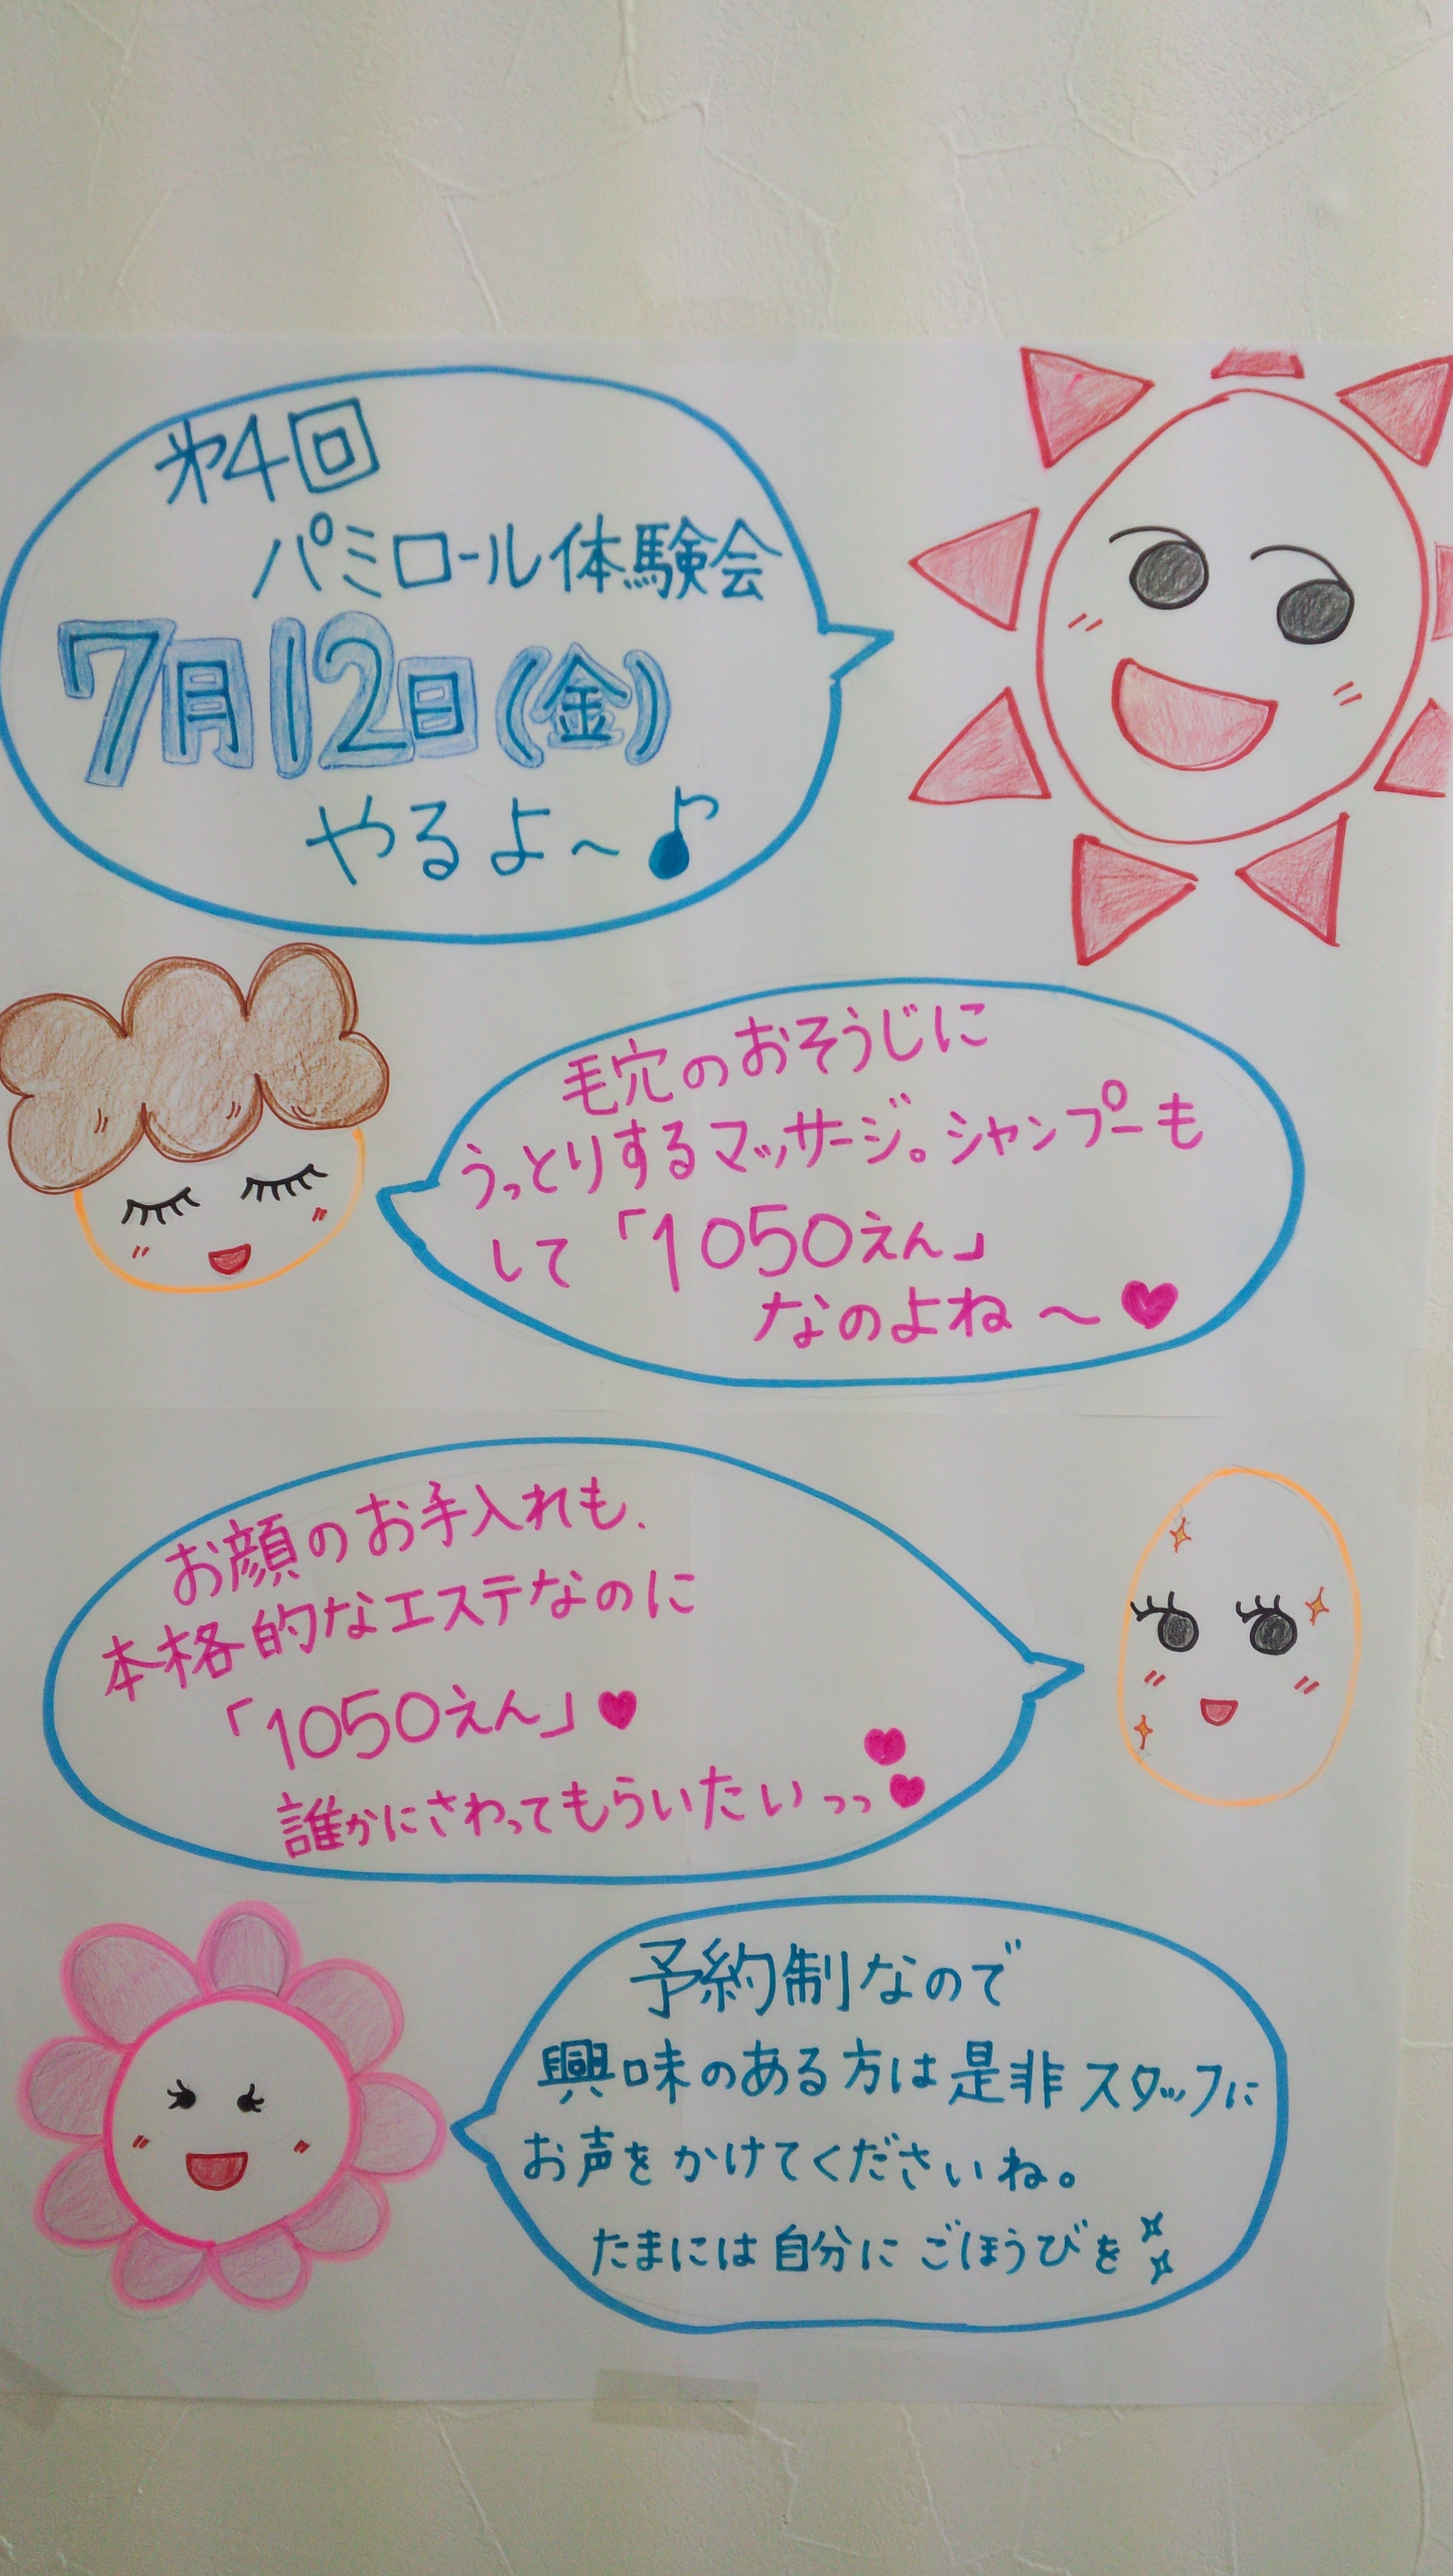 第4回
パミロール体験会
7月12日(金)
やるよ～♪
毛穴のおそうじに
うっとりするマッサージ。シャンプーも
して「1050えん」
なのよね～♥
お顔のお手入れも、
本格的なエステなのに
「1050えん」♥
誰かにさわってもらいたいっっ♥♥
予約制なので
興味のある方は是非スタッフに
お声をかけてくださいね。
たまには自分にごほうびを